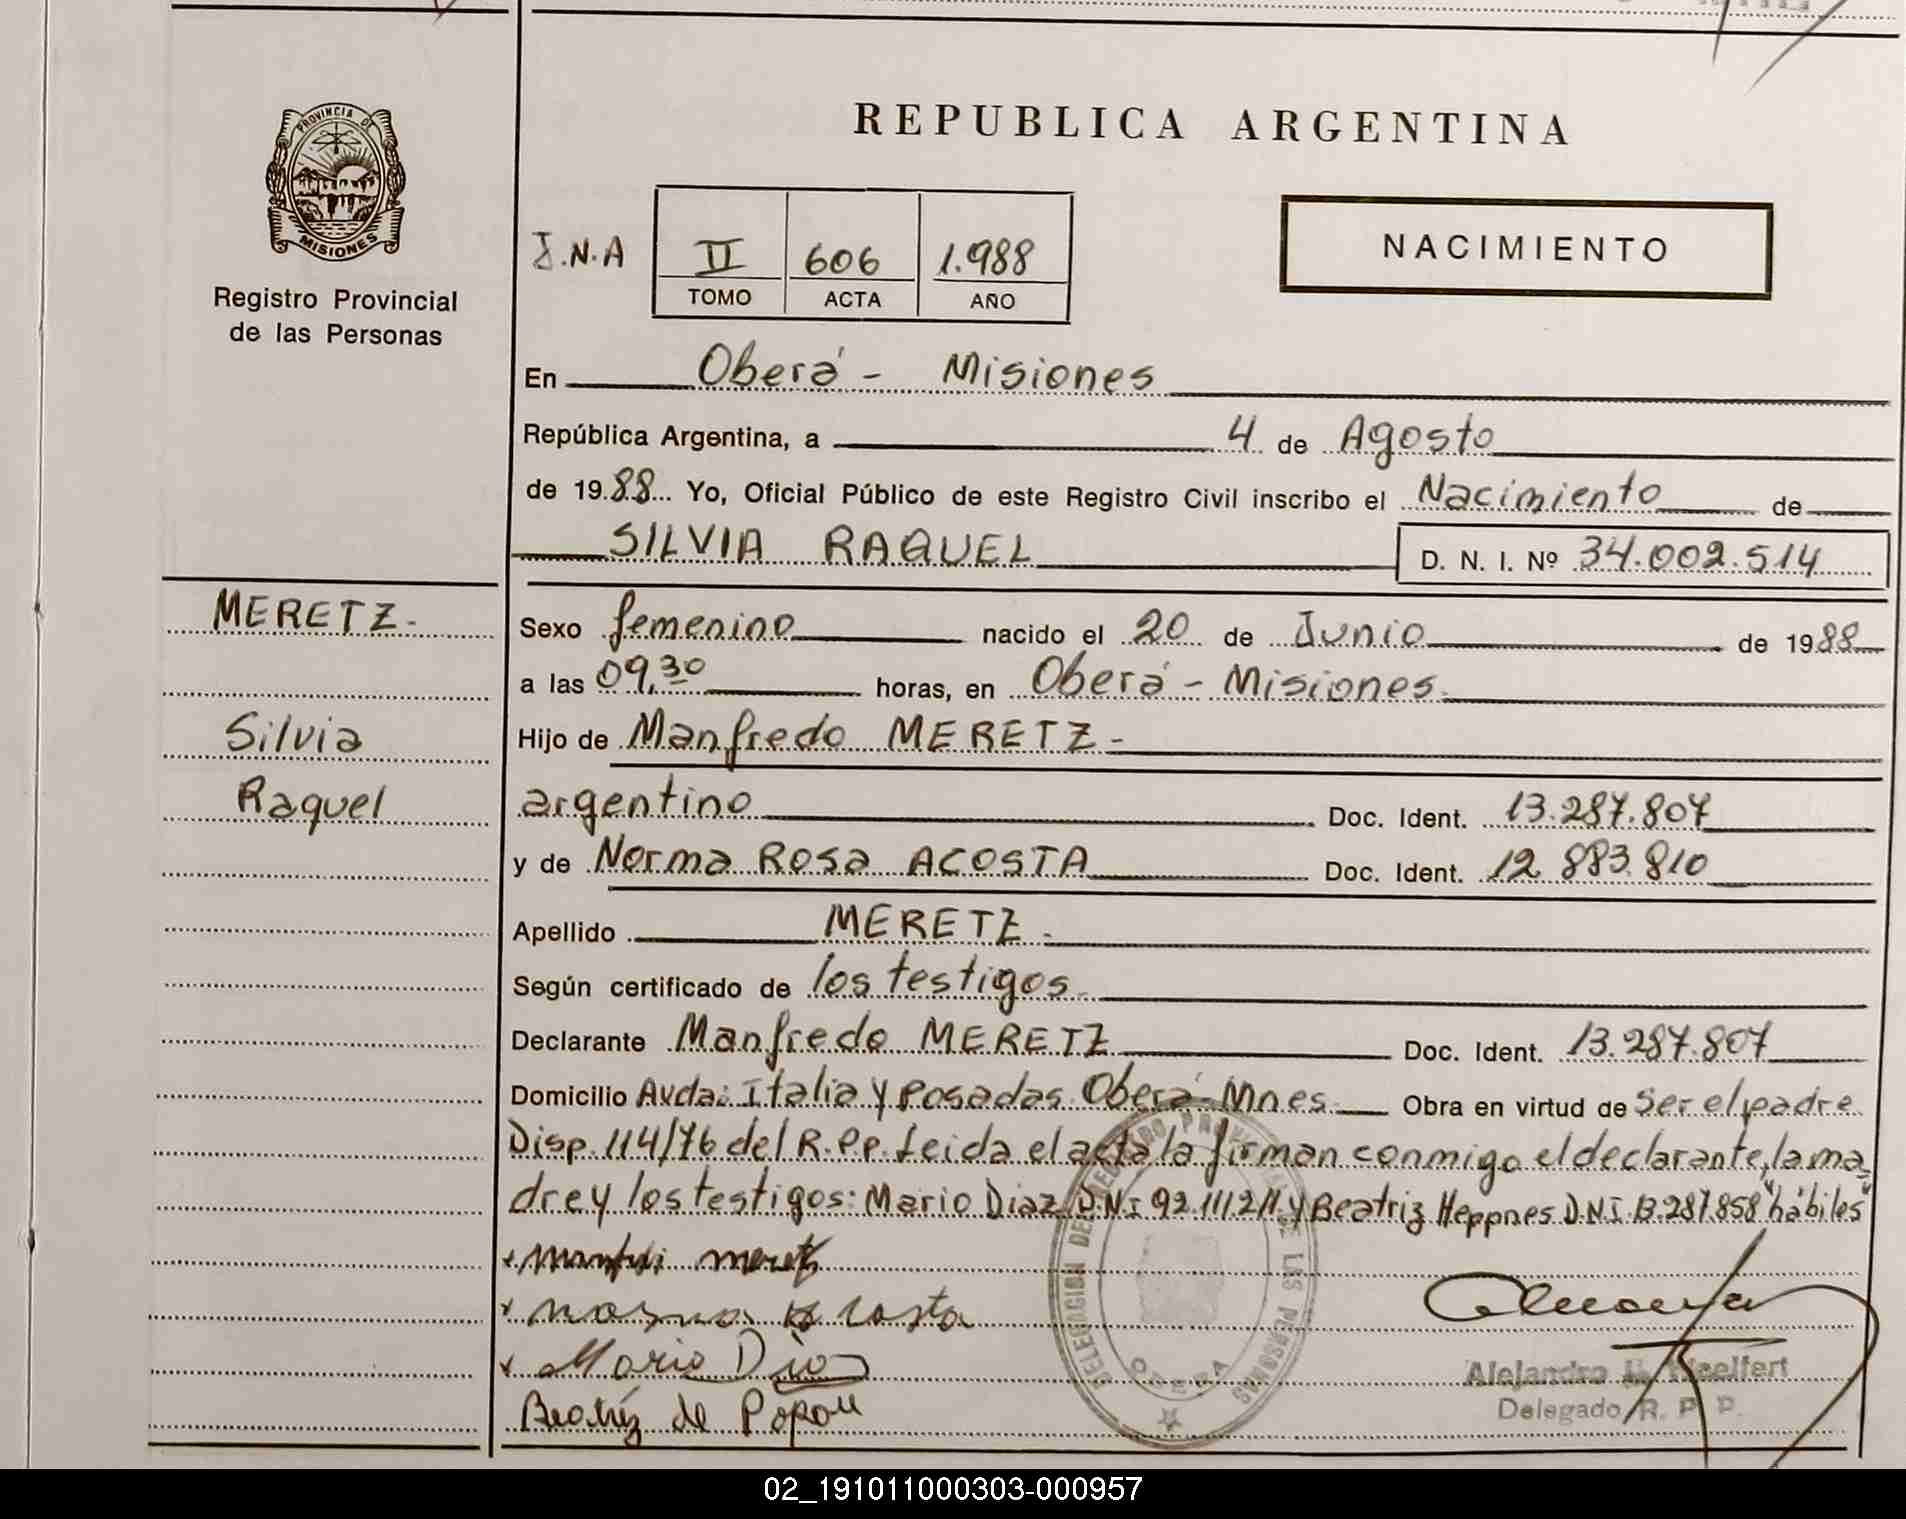 PROVINCIA DE
MISIONES
Registro Provincial
de las Personas
REPUBLICA ARGENTINA
J.N.A II 606 1.988
TOMO ACTA AÑO
NACIMIENTO
En Oberá - Misiones
República Argentina, a 4 de Agosto
de 1988 Yo, Oficial Público de este Registro Civil inscribo el Nacimiento de
SILVIA RAQUEL D. N. I. Nº 34.002.514
MERETZ-
Silvia
Raquel
Sexo femenino nacido el 20 de Junio de 1988
a las 09,30 horas, en Oberá - Misiones.
Hijo de Manfredo MERETZ-
argentino Doc. Ident. 13.287.807
y de Norma Rosa ACOSTA Doc. Ident. 12.883.810
Apellido MERETZ.
Según certificado de los testigos.
Declarante Manfredo MERETZ Doc. Ident. 13.287.807
Domicilio Avda: Italia y Posadas Oberá-Mnes. Obra en virtud de Ser el padre
Disp. 114/76 del R.P.P. Leida el acta la firman conmigo el declarante, la ma
dre y los testigos: Mario Diaz D.N.I 92.111.211 y Beatriz Heppnes D.N.I. 13.287.858 "hábiles"
Mario Diaz
Beatriz de Popou
DELEGACION DEL REGISTRO PROVINCIAL DE LAS PERSONAS
OBERA
Alejandro
Delegado R. P. P.
02_191011000303-000957